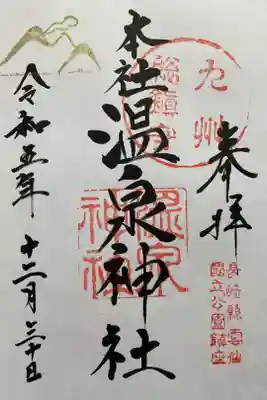 奉拝
九州
總鎮守
長崎縣雲仙
國立公園鎮座
本社温泉神社
温泉
神社
令和五年 十二月三十日